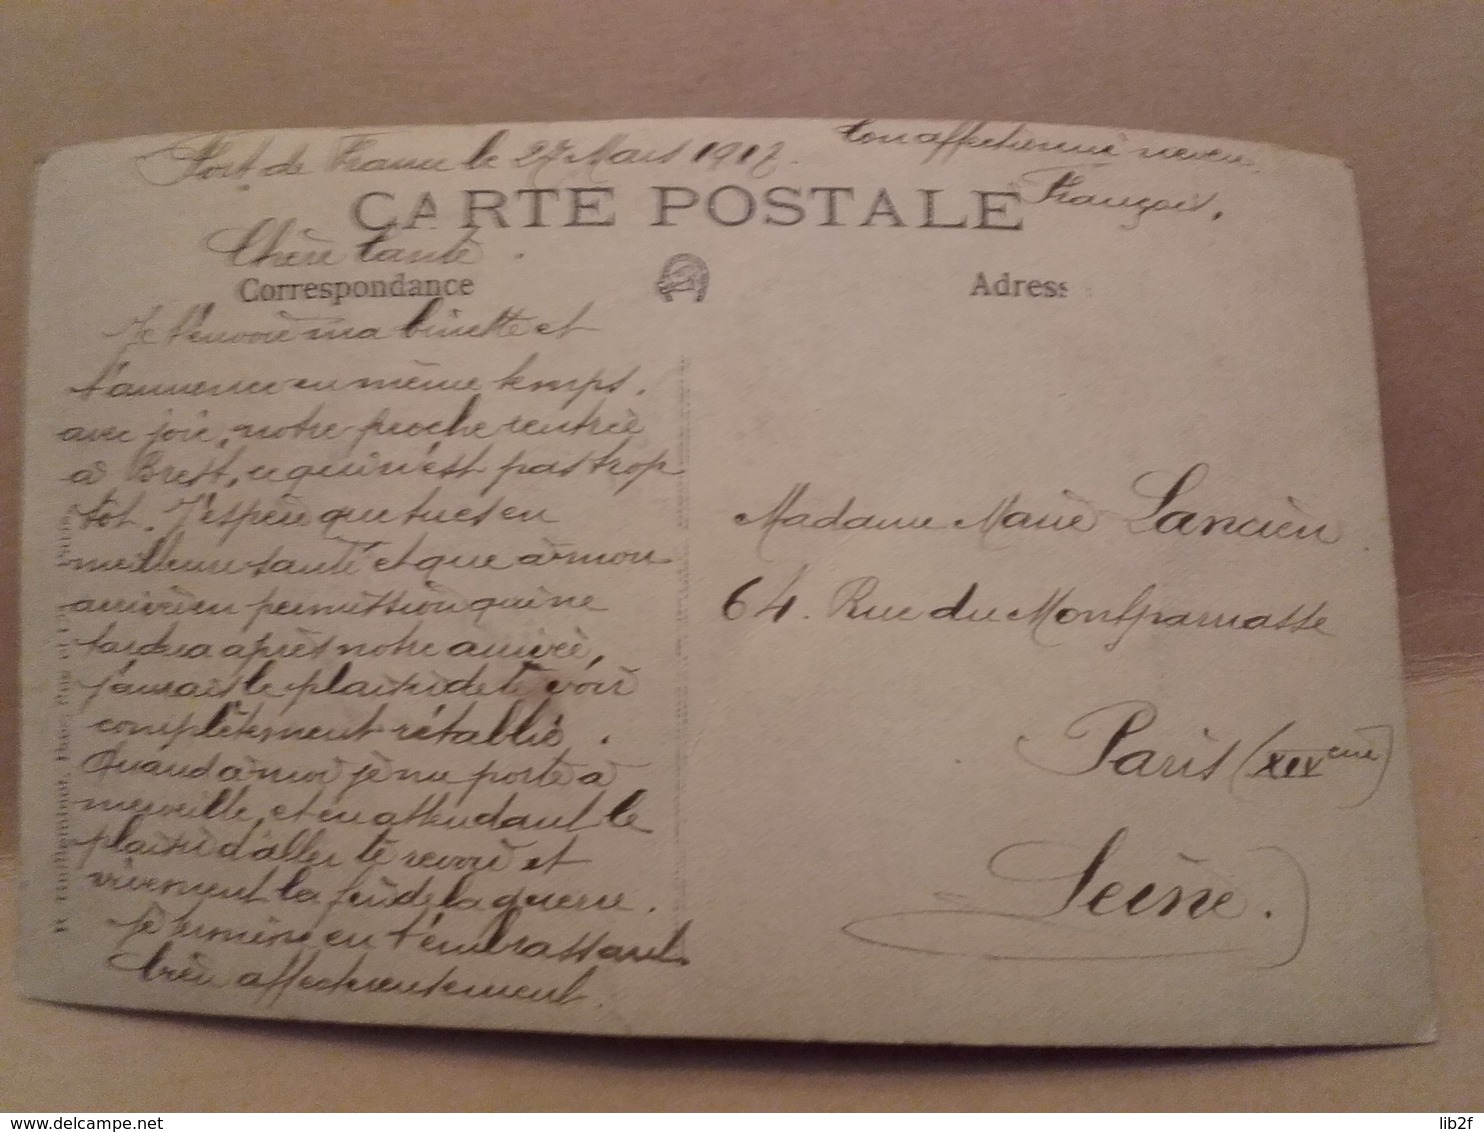 Fort de France le 27 Mars 1917.
Ton affectionné neveu
François.
CARTE POSTALE
Chère tante.
Correspondance
Adress
Je t'envoie ma binette et
t'annonce en même temps,
avec joie, notre proche rentrée
à Brest, ce qui n'est pas trop
tôt. J'espère que tu es en
meilleure santé et que à mon
arrivée en permission qui ne
tardera après notre arrivée,
j'aurais le plaisir de te voir
complètement rétablie.
Quand à moi je me porte à
merveille, et en attendant le
plaisir d'aller te revoir et
vivement la fin de la guerre.
Je termine en t'embrassant
bien affectueusement.
Madame Marie Lancien
64. Rue du Montparnasse
Paris (XIVeme)
Seine.
delcampe.net
lib2f